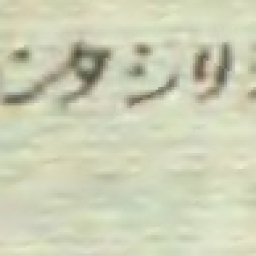 ンタシリ